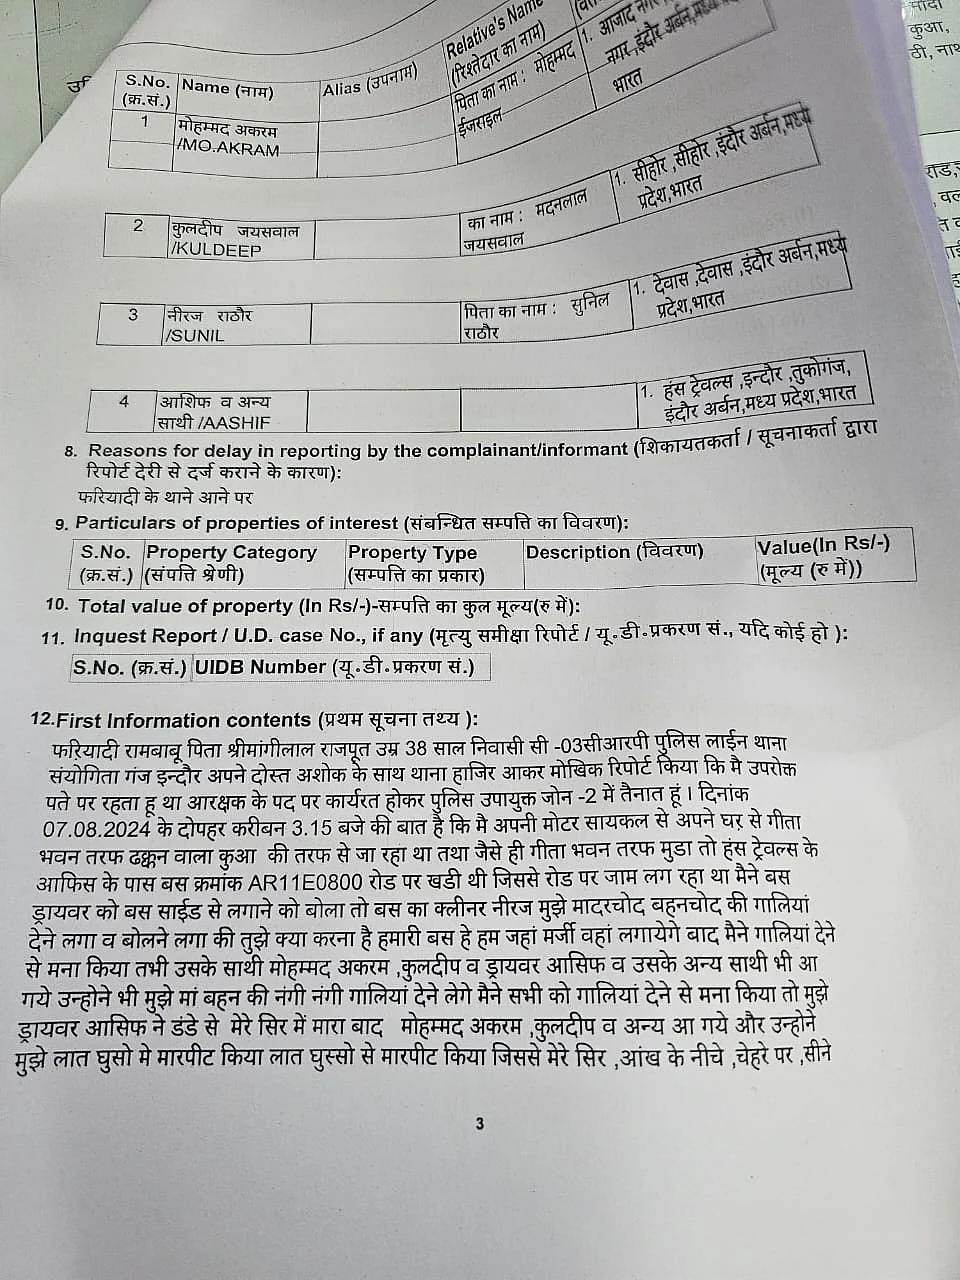 S.No. Name (नाम) Alias (उपनाम) Relative's Name
(क्र.सं.) (रिश्तेदार का नाम)
1 मोहम्मद अकरम पिता का नाम : मोहम्मद 1. आजाद नगर
/MO.AKRAM ईजराइल नगर,इंदौर अर्बन,मध्य
भारत
2 कुलदीप जयसवाल का नाम : मदनलाल 1. सीहोर ,सीहोर ,इंदौर अर्बन,मध्य
/KULDEEP जयसवाल प्रदेश,भारत
3 नीरज राठौर पिता का नाम : सुनिल 1. देवास ,देवास ,इंदौर अर्बन,मध्य
/SUNIL राठौर प्रदेश,भारत
4 आशिफ व अन्य 1. हंस ट्रेवल्स ,इन्दौर ,तुकोगंज,
साथी /AASHIF इंदौर अर्बन,मध्य प्रदेश,भारत
8. Reasons for delay in reporting by the complainant/informant (शिकायतकर्ता / सूचनाकर्ता द्वारा
रिपोर्ट देरी से दर्ज कराने के कारण):
फरियादी के थाने आने पर
9. Particulars of properties of interest (संबन्धित सम्पत्ति का विवरण):
S.No. Property Category Property Type Description (विवरण) Value(In Rs/-)
(क्र.सं.) (संपत्ति श्रेणी) (सम्पत्ति का प्रकार) (मूल्य (रु में))
10. Total value of property (In Rs/-)-सम्पत्ति का कुल मूल्य(रु में):
11. Inquest Report / U.D. case No., if any (मृत्यु समीक्षा रिपोर्ट / यू.डी.प्रकरण सं., यदि कोई हो ):
S.No. (क्र.सं.) UIDB Number (यू.डी.प्रकरण सं.)
12.First Information contents (प्रथम सूचना तथ्य ):
फरियादी रामबाबू पिता श्रीमांगीलाल राजपूत उम्र 38 साल निवासी सी -03सीआरपी पुलिस लाईन थाना
संयोगिता गंज इन्दौर अपने दोस्त अशोक के साथ थाना हाजिर आकर मोखिक रिपोर्ट किया कि मै उपरोक्त
पते पर रहता हू था आरक्षक के पद पर कार्यरत होकर पुलिस उपायुक्त जोन -2 में तैनात हूं । दिनांक
07.08.2024 के दोपहर करीबन 3.15 बजे की बात है कि मै अपनी मोटर सायकल से अपने घर से गीता
भवन तरफ ढक्कन वाला कुआ की तरफ से जा रहा था तथा जैसे ही गीता भवन तरफ मुडा तो हंस ट्रेवल्स के
आफिस के पास बस क्रमांक AR11E0800 रोड पर खडी थी जिससे रोड पर जाम लग रहा था मैने बस
ड्रायवर को बस साईड से लगाने को बोला तो बस का क्लीनर नीरज मुझे मादरचोद बहनचोद की गालियां
देने लगा व बोलने लगा की तुझे क्या करना है हमारी बस हे हम जहां मर्जी वहां लगायेगे बाद मैने गालियां देने
से मना किया तभी उसके साथी मोहम्मद अकरम ,कुलदीप व ड्रायवर आसिफ व उसके अन्य साथी भी आ
गये उन्होने भी मुझे मां बहन की नंगी नंगी गालियां देने लेगे मैने सभी को गालियां देने से मना किया तो मुझे
ड्रायवर आसिफ ने डंडे से मेरे सिर में मारा बाद मोहम्मद अकरम ,कुलदीप व अन्य आ गये और उन्होने
मुझे लात घुसो मे मारपीट किया लात घुस्सो से मारपीट किया जिससे मेरे सिर ,आंख के नीचे ,चेहरे पर ,सीने
3